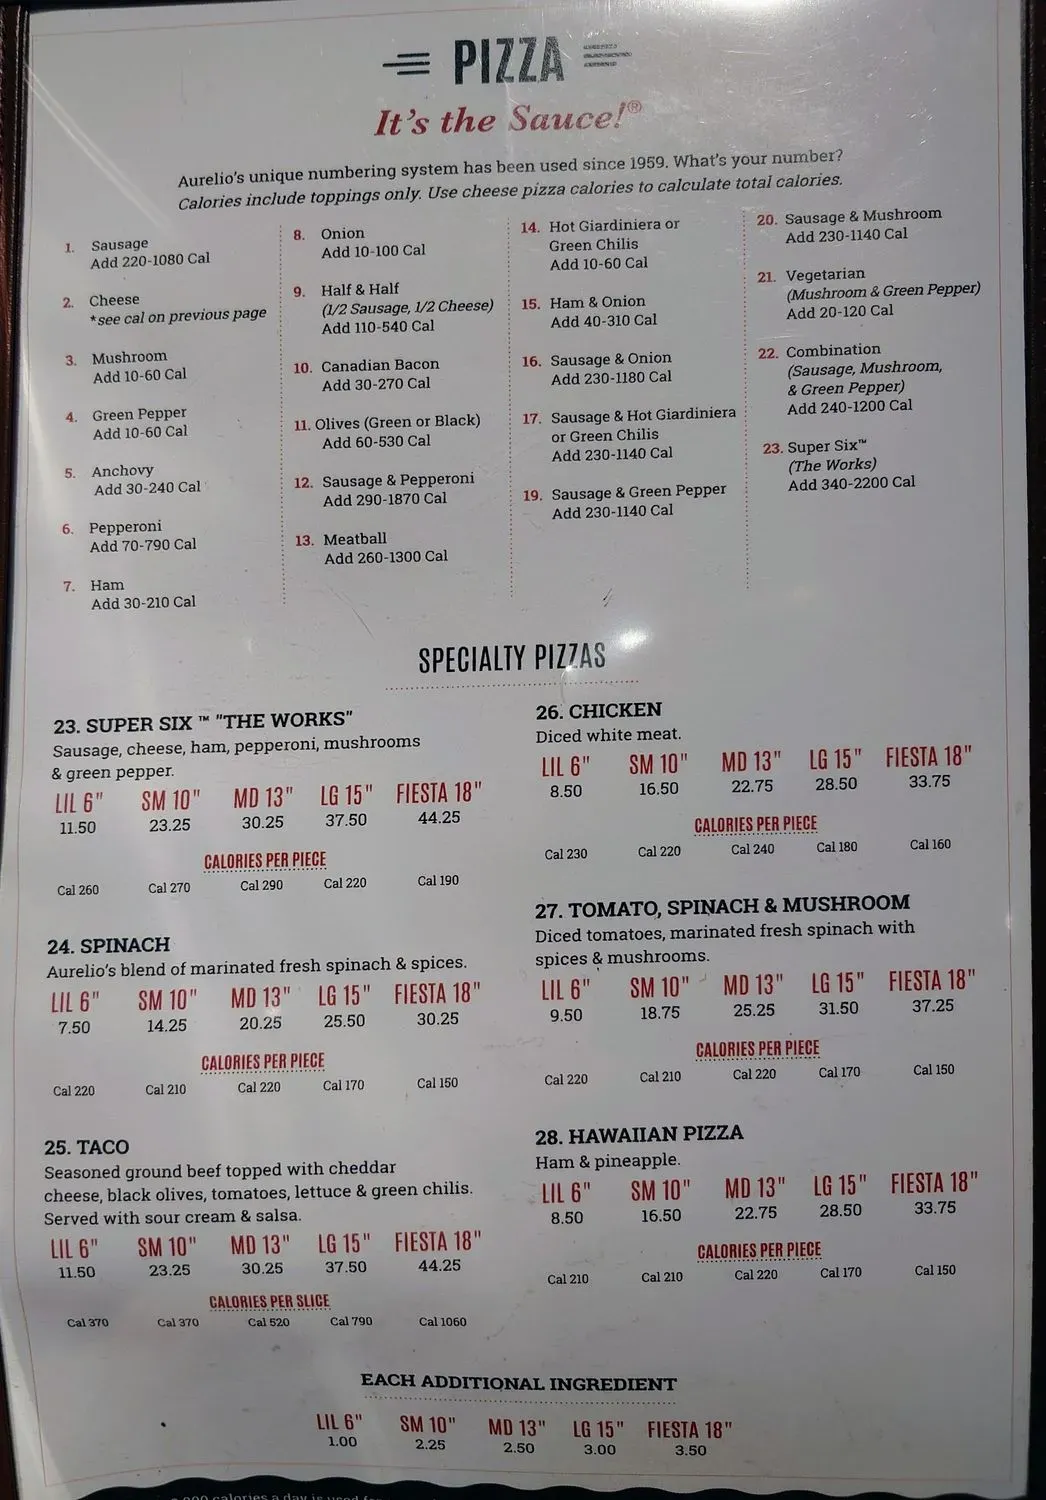 PIZZA
It's the Sauce!®
Aurelio's unique numbering system has been used since 1959. What's your number?
Calories include toppings only. Use cheese pizza calories to calculate total calories.
1. Sausage
Add 220-1080 Cal
2. Cheese
*see cal on previous page
3. Mushroom
Add 10-60 Cal
4. Green Pepper
Add 10-60 Cal
5. Anchovy
Add 30-240 Cal
6. Pepperoni
Add 70-790 Cal
7. Ham
Add 30-210 Cal
8. Onion
Add 10-100 Cal
9. Half & Half
(1/2 Sausage, 1/2 Cheese)
Add 110-540 Cal
10. Canadian Bacon
Add 30-270 Cal
11. Olives (Green or Black)
Add 60-530 Cal
12. Sausage & Pepperoni
Add 290-1870 Cal
13. Meatball
Add 260-1300 Cal
14. Hot Giardiniera or
Green Chilis
Add 10-60 Cal
15. Ham & Onion
Add 40-310 Cal
16. Sausage & Onion
Add 230-1180 Cal
17. Sausage & Hot Giardiniera
or Green Chilis
Add 230-1140 Cal
19. Sausage & Green Pepper
Add 230-1140 Cal
20. Sausage & Mushroom
Add 230-1140 Cal
21. Vegetarian
(Mushroom & Green Pepper)
Add 20-120 Cal
22. Combination
(Sausage, Mushroom,
& Green Pepper)
Add 240-1200 Cal
23. Super Six™
(The Works)
Add 340-2200 Cal
SPECIALTY PIZZAS
23. SUPER SIX ™ "THE WORKS"
Sausage, cheese, ham, pepperoni, mushrooms
& green pepper.
LIL 6" SM 10" MD 13" LG 15" FIESTA 18"
11.50 23.25 30.25 37.50 44.25
CALORIES PER PIECE
Cal 260 Cal 270 Cal 290 Cal 220 Cal 190
24. SPINACH
Aurelio's blend of marinated fresh spinach & spices.
LIL 6" SM 10" MD 13" LG 15" FIESTA 18"
7.50 14.25 20.25 25.50 30.25
CALORIES PER PIECE
Cal 220 Cal 210 Cal 220 Cal 170 Cal 150
25. TACO
Seasoned ground beef topped with cheddar
cheese, black olives, tomatoes, lettuce & green chilis.
Served with sour cream & salsa.
LIL 6" SM 10" MD 13" LG 15" FIESTA 18"
11.50 23.25 30.25 37.50 44.25
CALORIES PER SLICE
Cal 370 Cal 370 Cal 520 Cal 790 Cal 1060
26. CHICKEN
Diced white meat.
LIL 6" SM 10" MD 13" LG 15" FIESTA 18"
8.50 16.50 22.75 28.50 33.75
CALORIES PER PIECE
Cal 230 Cal 220 Cal 240 Cal 180 Cal 160
27. TOMATO, SPINACH & MUSHROOM
Diced tomatoes, marinated fresh spinach with
spices & mushrooms.
LIL 6" SM 10" MD 13" LG 15" FIESTA 18"
9.50 18.75 25.25 31.50 37.25
CALORIES PER PIECE
Cal 220 Cal 210 Cal 220 Cal 170 Cal 150
28. HAWAIIAN PIZZA
Ham & pineapple.
LIL 6" SM 10" MD 13" LG 15" FIESTA 18"
8.50 16.50 22.75 28.50 33.75
CALORIES PER PIECE
Cal 210 Cal 210 Cal 220 Cal 170 Cal 150
EACH ADDITIONAL INGREDIENT
LIL 6" SM 10" MD 13" LG 15" FIESTA 18"
1.00 2.25 2.50 3.00 3.50
calories a day is used